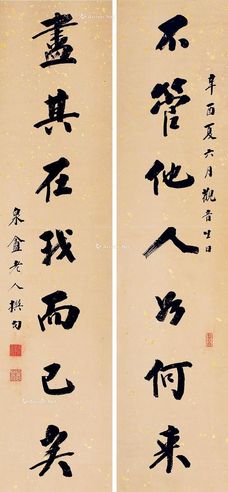 辛酉夏六月觀音生日
不管他人如何来
盡其在我而已矣
泉盦老人撰句